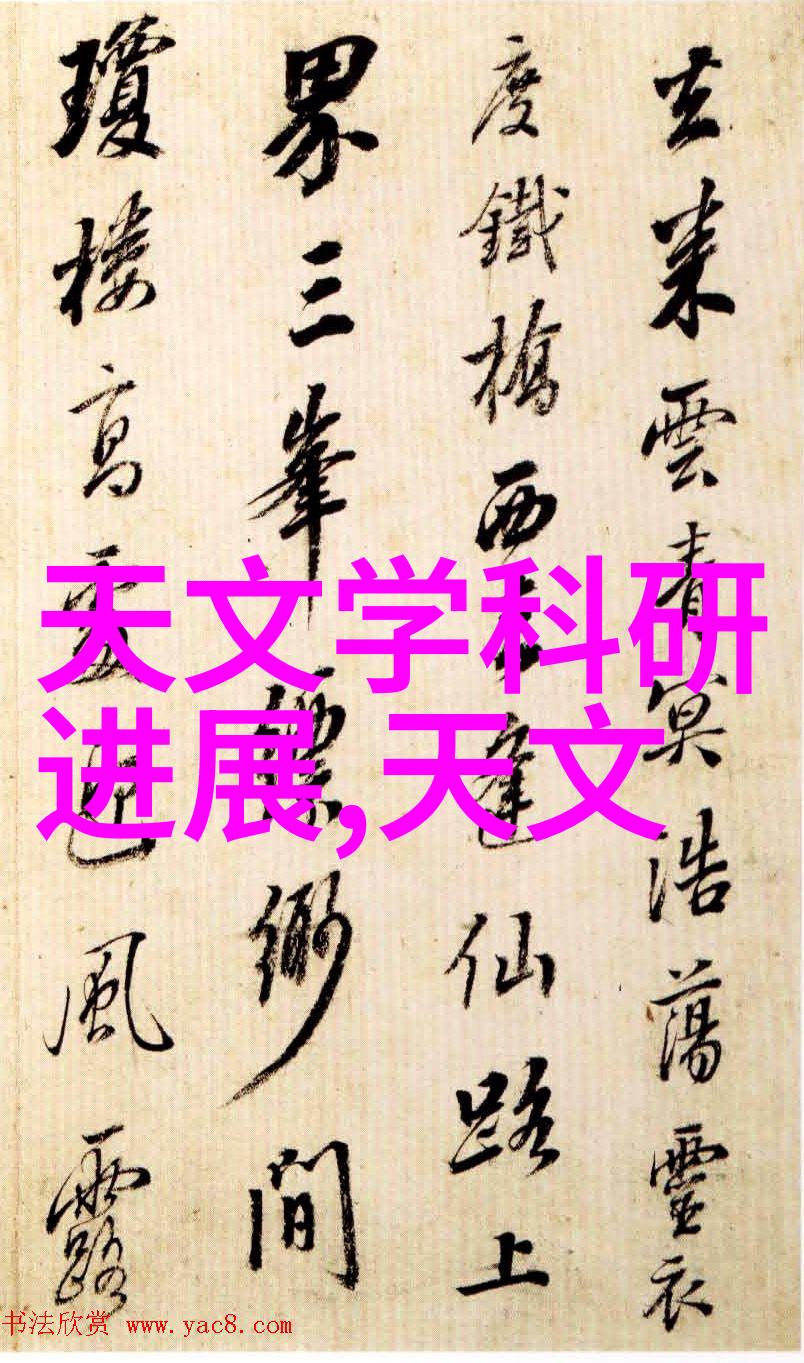 去来雲青冥浩蕩靈衣
度鐵橋西逢仙路上
界三峯縹緲間
瓊樓高處迥風露
天文学科研
进展,天文
书法欣赏 www.yac8.com